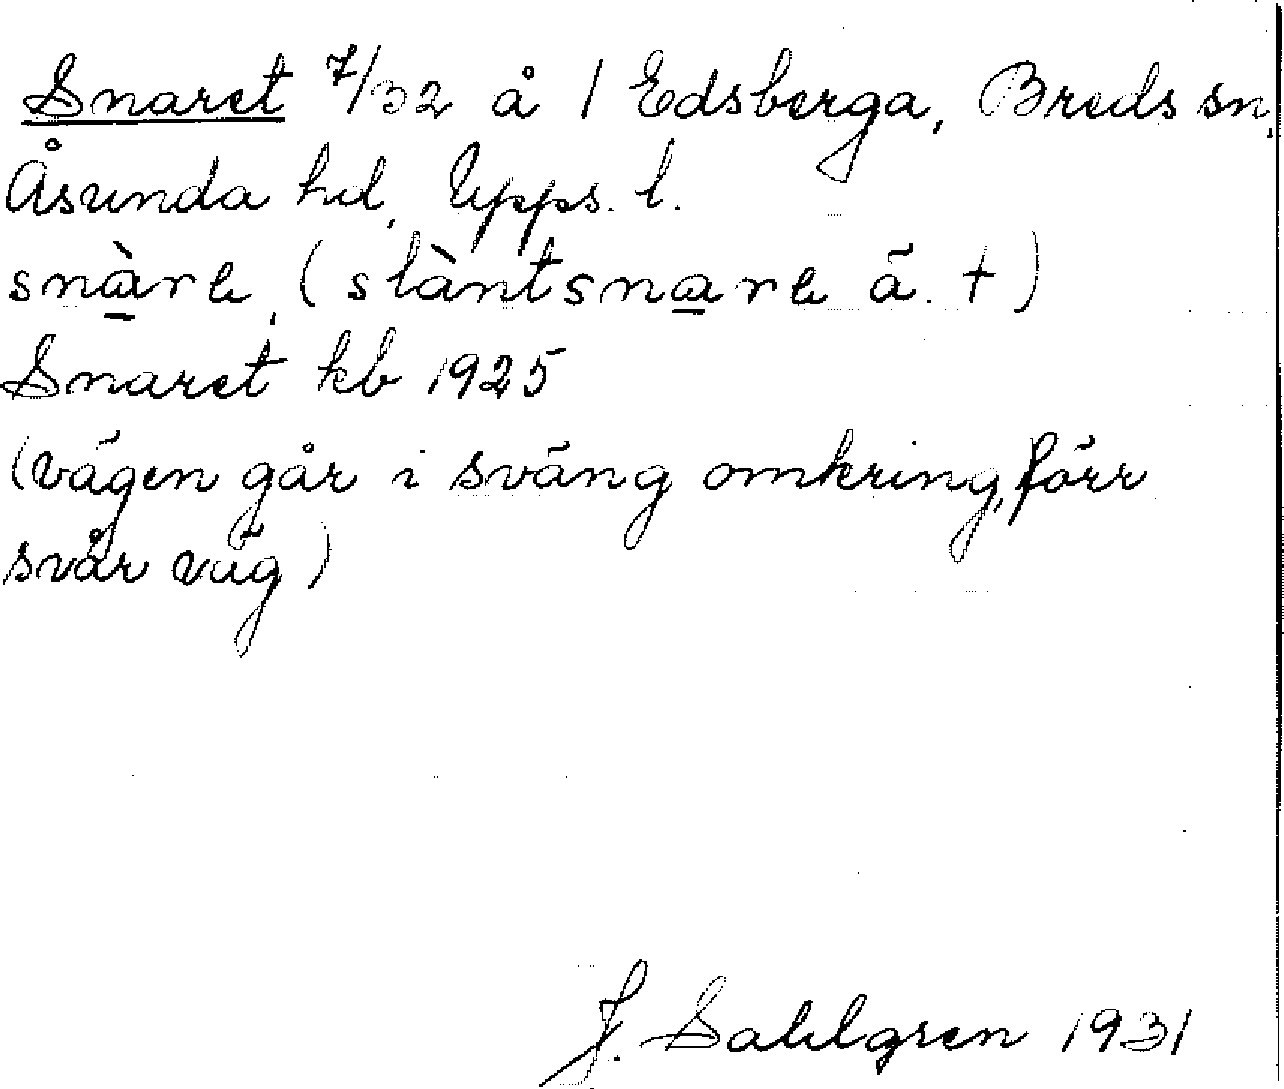 Snaret 7/32 å 1 Edsberga, Breds sn,
Åsunda hd, Upps. l.
snàre, (slàntsnare ä. +)
Snaret kb 1925
(vägen går i sväng omkring, förr
svår väg)
J. Sahlgren 1931